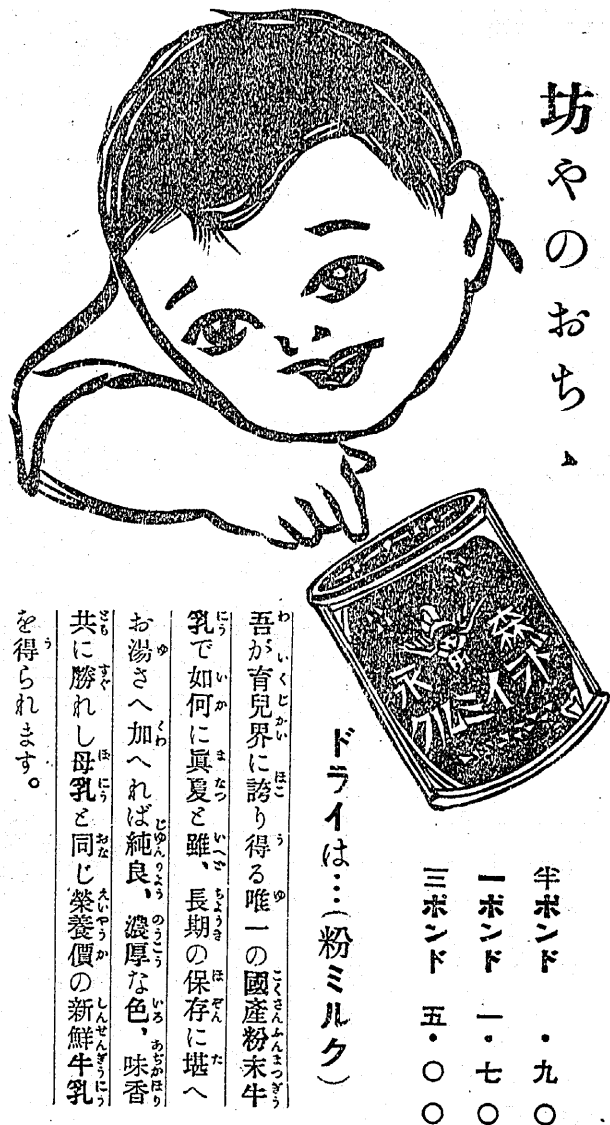 坊やのおちゝ
森永
ドライミルク
半ポンド ・九〇
一ポンド 一・七〇
三ポンド 五・〇〇
ドライは…(粉ミルク)
吾が育兒界に誇り得る唯一の國産粉末牛
乳で如何に眞夏と雖、長期の保存に堪へ
お湯さへ加へれば純良、濃厚な色、味香
共に勝れし母乳と同じ榮養價の新鮮牛乳
を得られます。